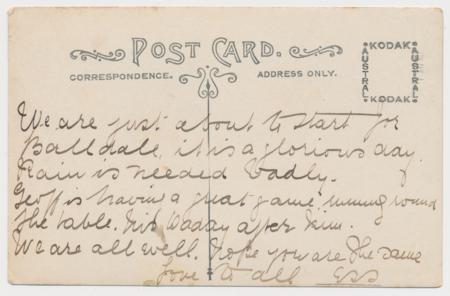 POST CARD.
CORRESPONDENCE. ADDRESS ONLY.
KODAK
AUSTRAL
AUSTRAL
KODAK
We are just about to start for
Balldale, it is a glorious day.
Rain is needed badly.
Geoff is having a great game running round
the table. his Daddy after him.
We are all well. Hope you are the same
Love to all Ess